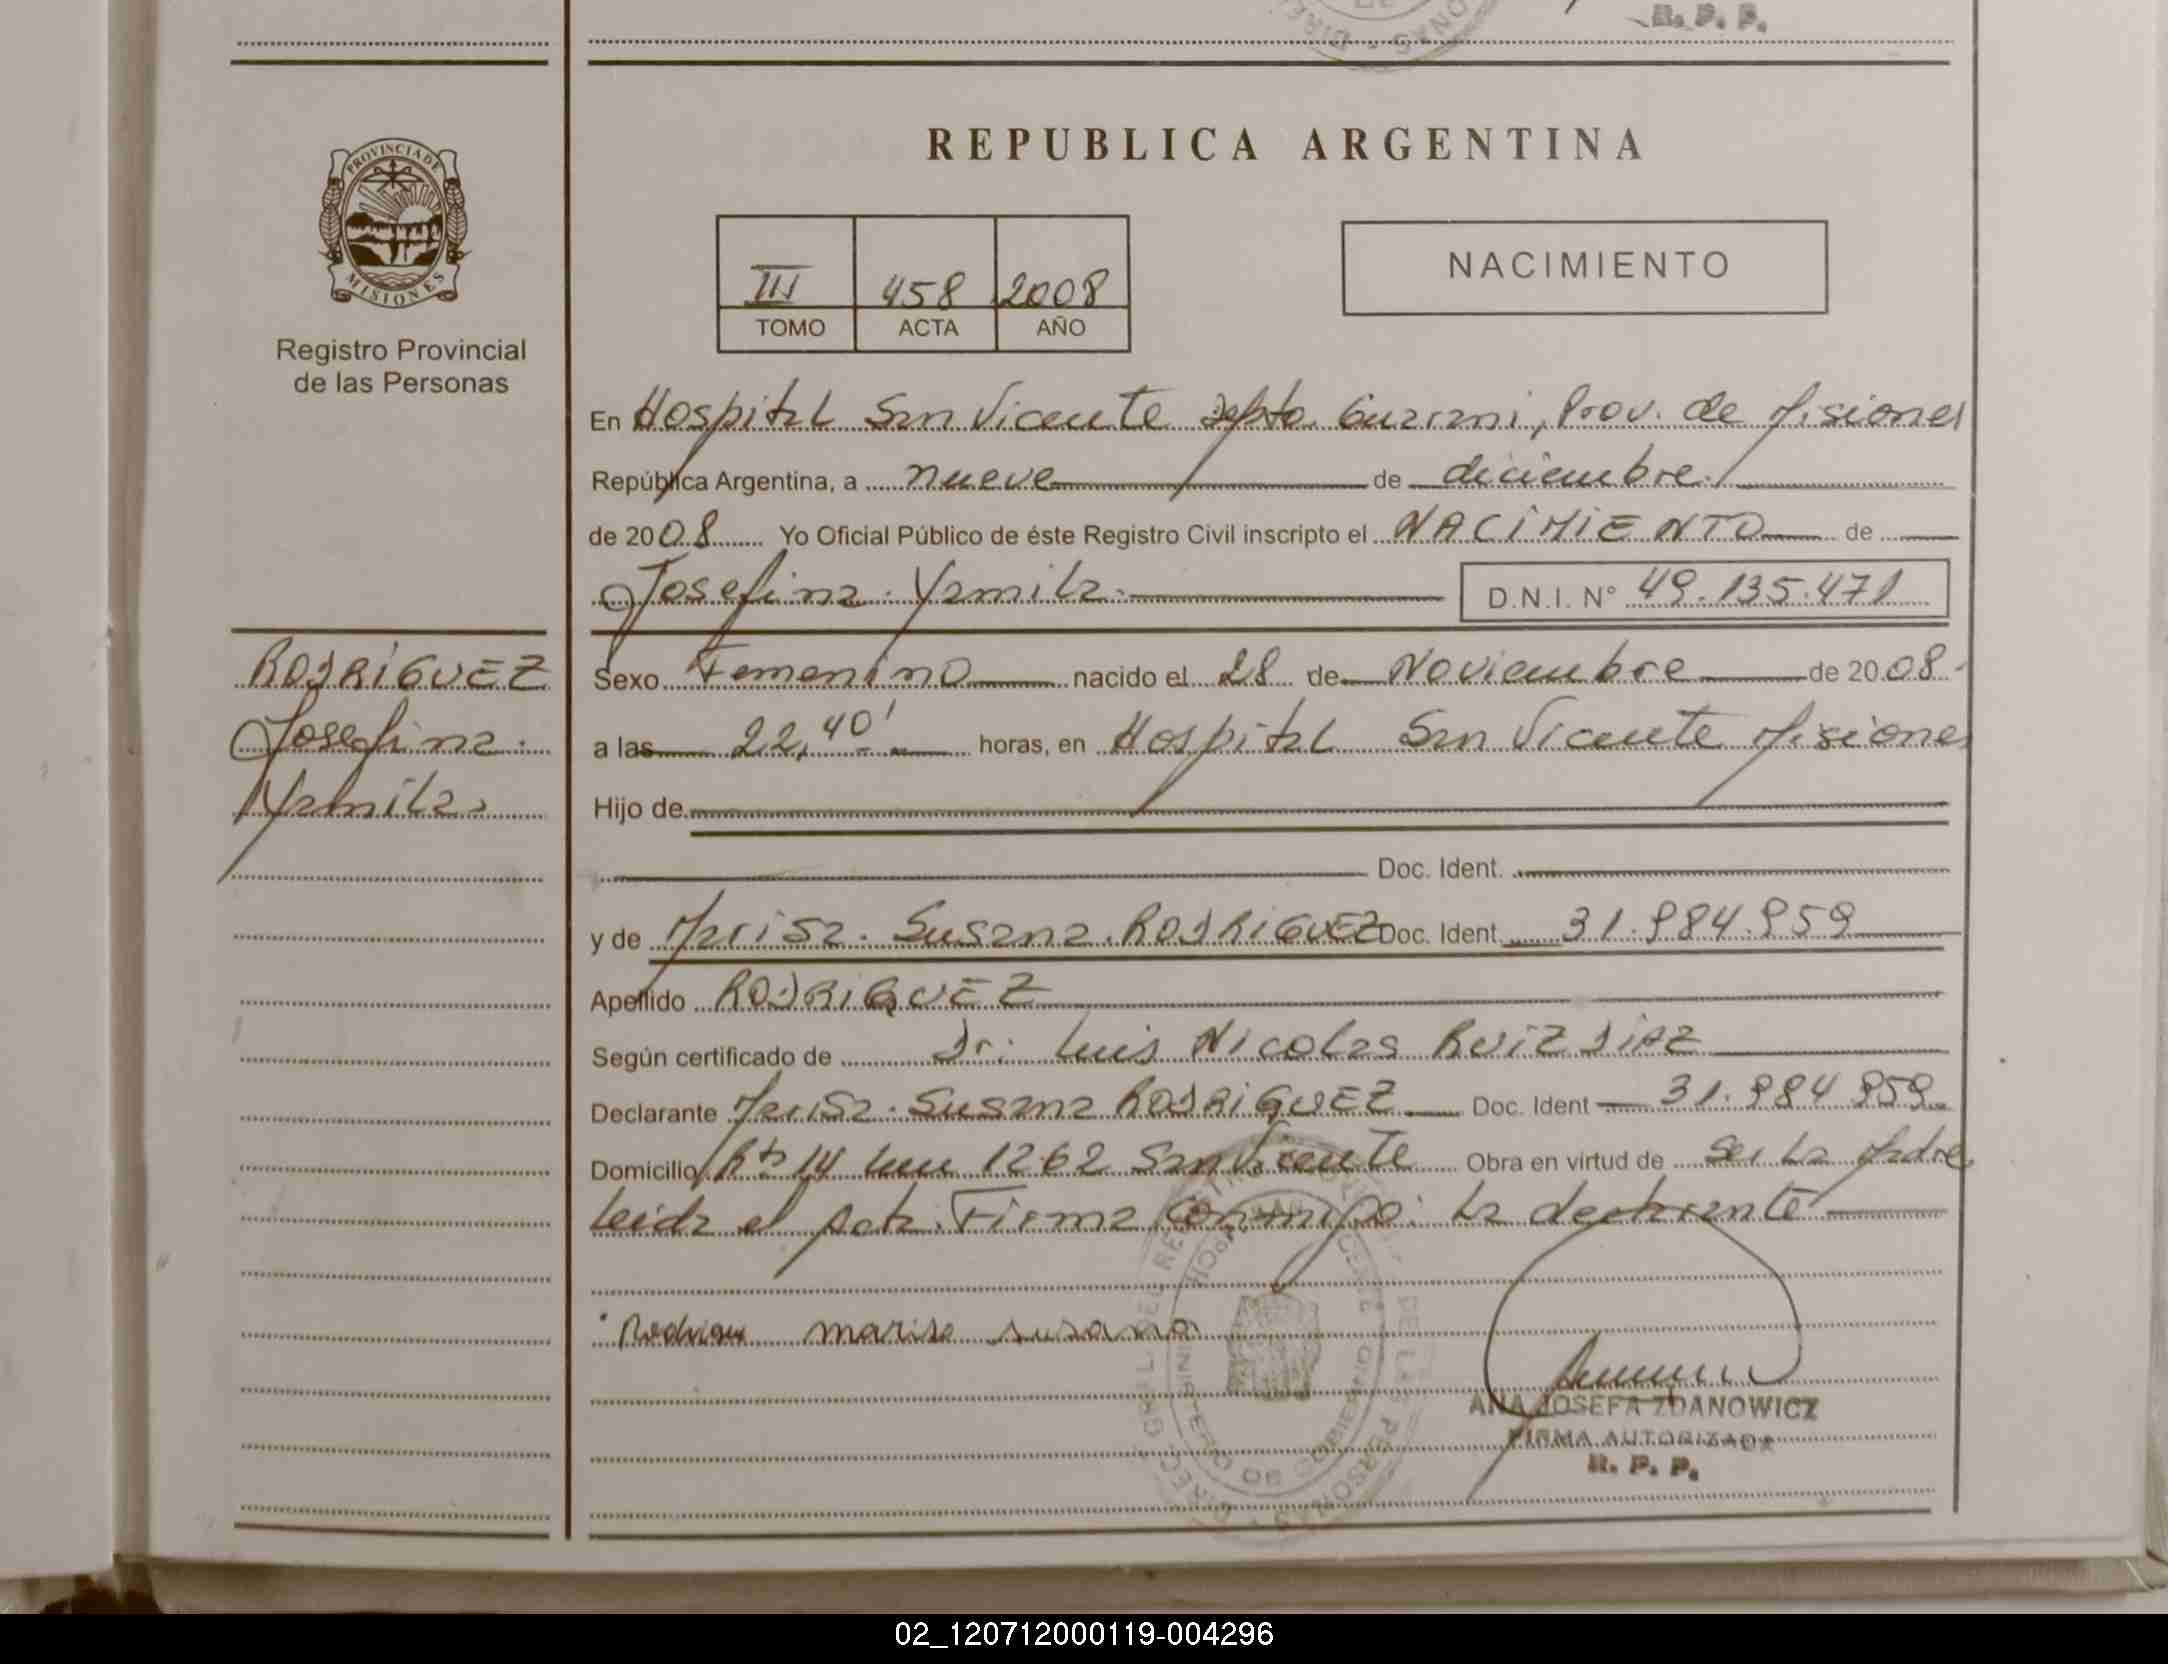 R. P. P.
REPUBLICA ARGENTINA
PROVINCIA DE
MISIONES
Registro Provincial
de las Personas
III 458 2008
TOMO ACTA AÑO
NACIMIENTO
En Hospital San Vicente Dpto. Guarani, Prov. de Misiones
República Argentina, a nueve de diciembre.
de 2008 Yo Oficial Público de éste Registro Civil inscripto el NACIMIENTO de
Josefina. Yamila. D.N.I. Nº 49.135.471
RODRIGUEZ
Josefina.
Yamila.
Sexo Femenino nacido el 28 de Noviembre de 2008.
a las 22,40' horas, en Hospital San Vicente Misiones
Hijo de
Doc. Ident.
y de Marisa. Susana. RODRIGUEZ Doc. Ident. 31.984.959
Apellido RODRIGUEZ
Según certificado de Dr. Luis Nicolas RUIZ DIAZ
Declarante Marisa. Susana RODRIGUEZ Doc. Ident 31.984.959
Domicilio Rta 14 km 1262 San Vicente Obra en virtud de ser la Madre
Leida el Acta. Firma Conmigo: La declarante
Rodriguez marisa susana
ANA JOSEFA ZDANOWICZ
FIRMA AUTORIZADA
R. P. P.
02_120712000119-004296